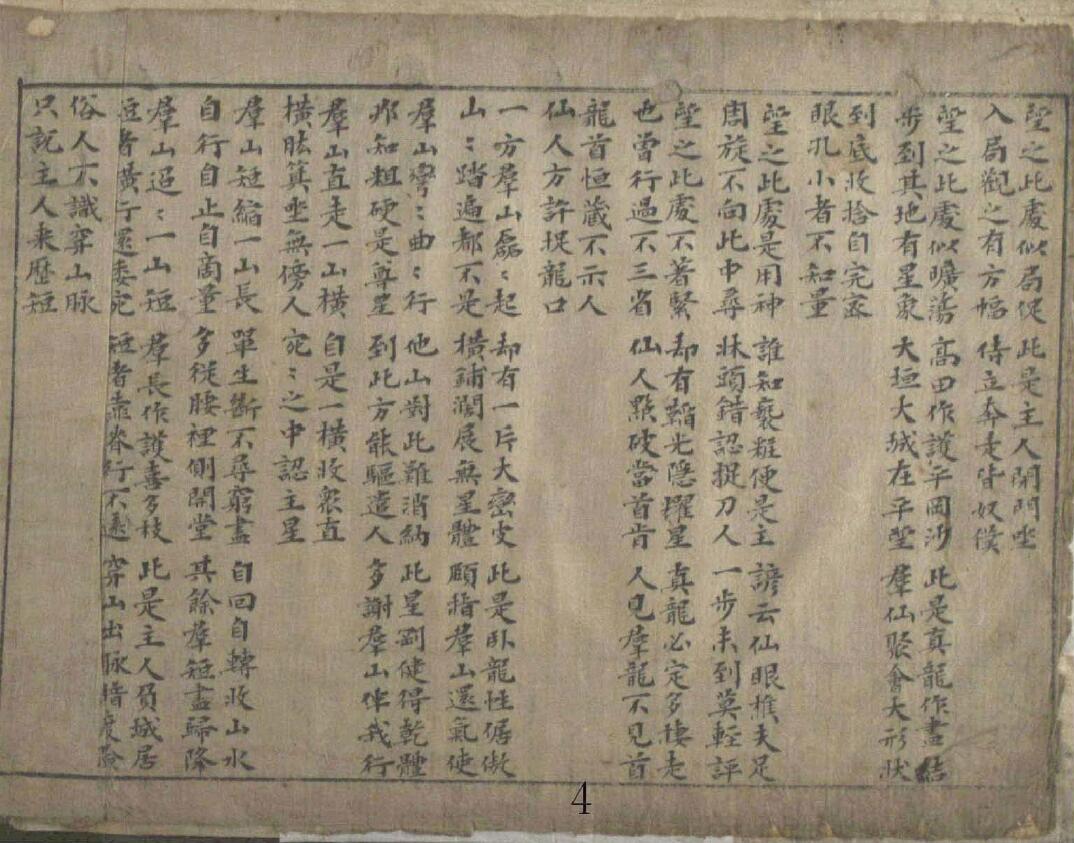 望之此處似局促 此是主人閉門坐
入局觀之有方幅 侍立奔走皆奴僕
望之此處似曠蕩 高田作護平岡沙 此是真龍作盡結
步到其地有星象 大垣大城在平望 羣仙聚會大形狀
到底收拾自完密
眼孔小者不知量
望之此處是用神 誰知褻粧便是主 諺云仙眼樵夫足
周旋不向此中尋 牀頭錯認捉刀人 一步未到莫輕評
望之此處不著緊 却有韜光隱耀星 真龍必定多慺走
也曾行過不三省 仙人點破當首肯 人見羣龍不見首
龍首恒藏不示人
仙人方許捉龍口
一方羣山磊〻起 却有一斤大巒皮 此是臥龍性倨傲
山〻踏遍都不是 橫鋪濶展無星體 頤指羣山還氣使
羣山彎〻曲〻行 他山對此難消納 此星剛健得乾體
那知粗硬是尊星 到此方能驅造人 多謝羣山伴我行
羣山直走一山橫 自是一橫收衆直
橫肱箕坐無傍人 宛〻之中認主星
羣山短縮一山長 單生斷不尋窮盡 自回自轉收山水
自行自止自商量 多從腰裡側開堂 其餘羣短盡歸降
羣山迢〻一山短 羣長作護喜多枝 此是主人負城居
短者橫行還委宛 短者靠脊行不遠 穿山出脉指度險
俗人不識穿山脉
只説主人來歷短